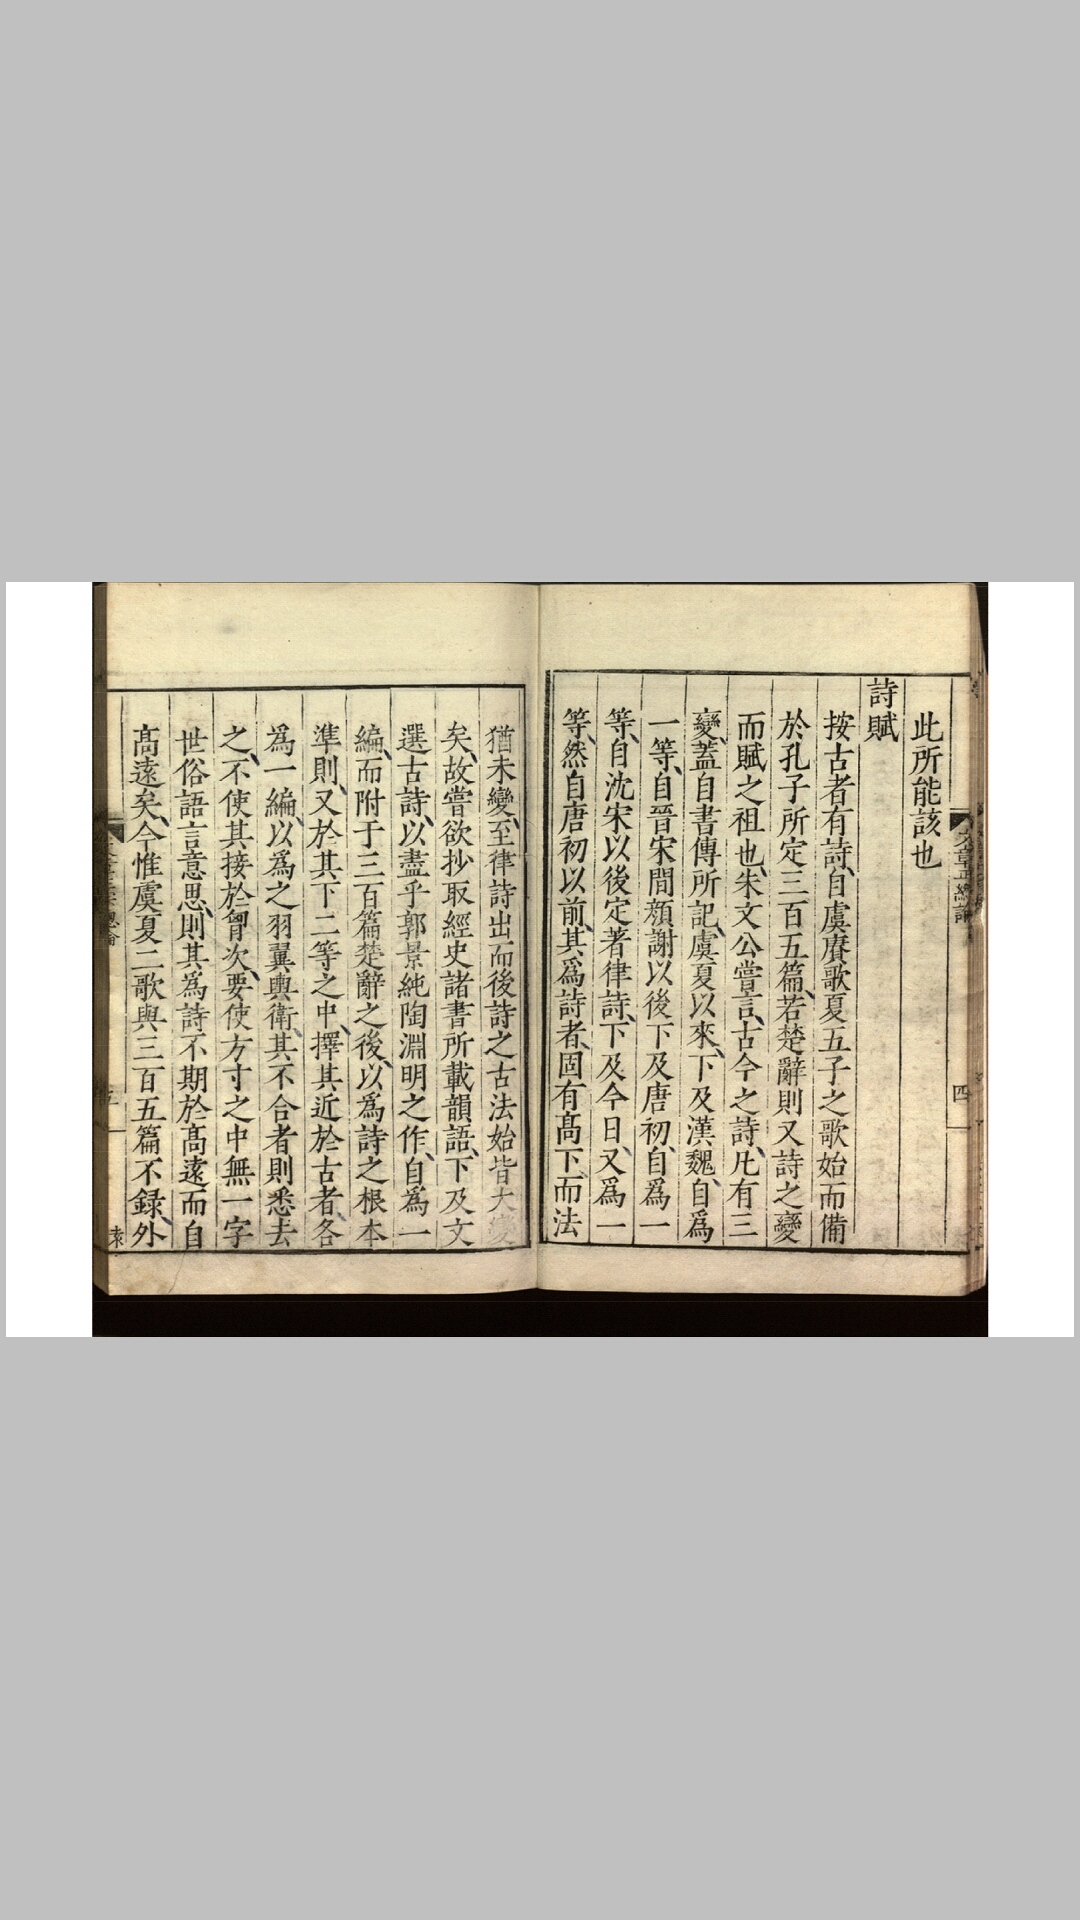 此所能該也
詩賦
按古者有詩自虞賡歌夏五子之歌始而備
於孔子所定三百五篇若楚辭則又詩之變
而賦之祖也朱文公嘗言古今之詩凡有三
變蓋自書傳所記虞夏以來下及漢魏自爲
一等自晉宋間顏謝以後下及唐初自爲一
等自沈宋以後定著律詩下及今日又爲一
等然自唐初以前其爲詩者固有髙下而法
猶未變至律詩出而後詩之古法始皆大變
矣故嘗欲抄取經史諸書所載韻語下及文
選古詩以盡乎郭景純陶淵明之作自爲一
編而附于三百篇楚辭之後以爲詩之根本
準則又於其下二等之中擇其近於古者各
爲一編以爲之羽翼輿衛其不合者則悉去
之不使其接於胷次要使方寸之中無一字
世俗語言意思則其爲詩不期於髙遠而自
髙遠矣今惟虞夏二歌與三百五篇不録外
四
五